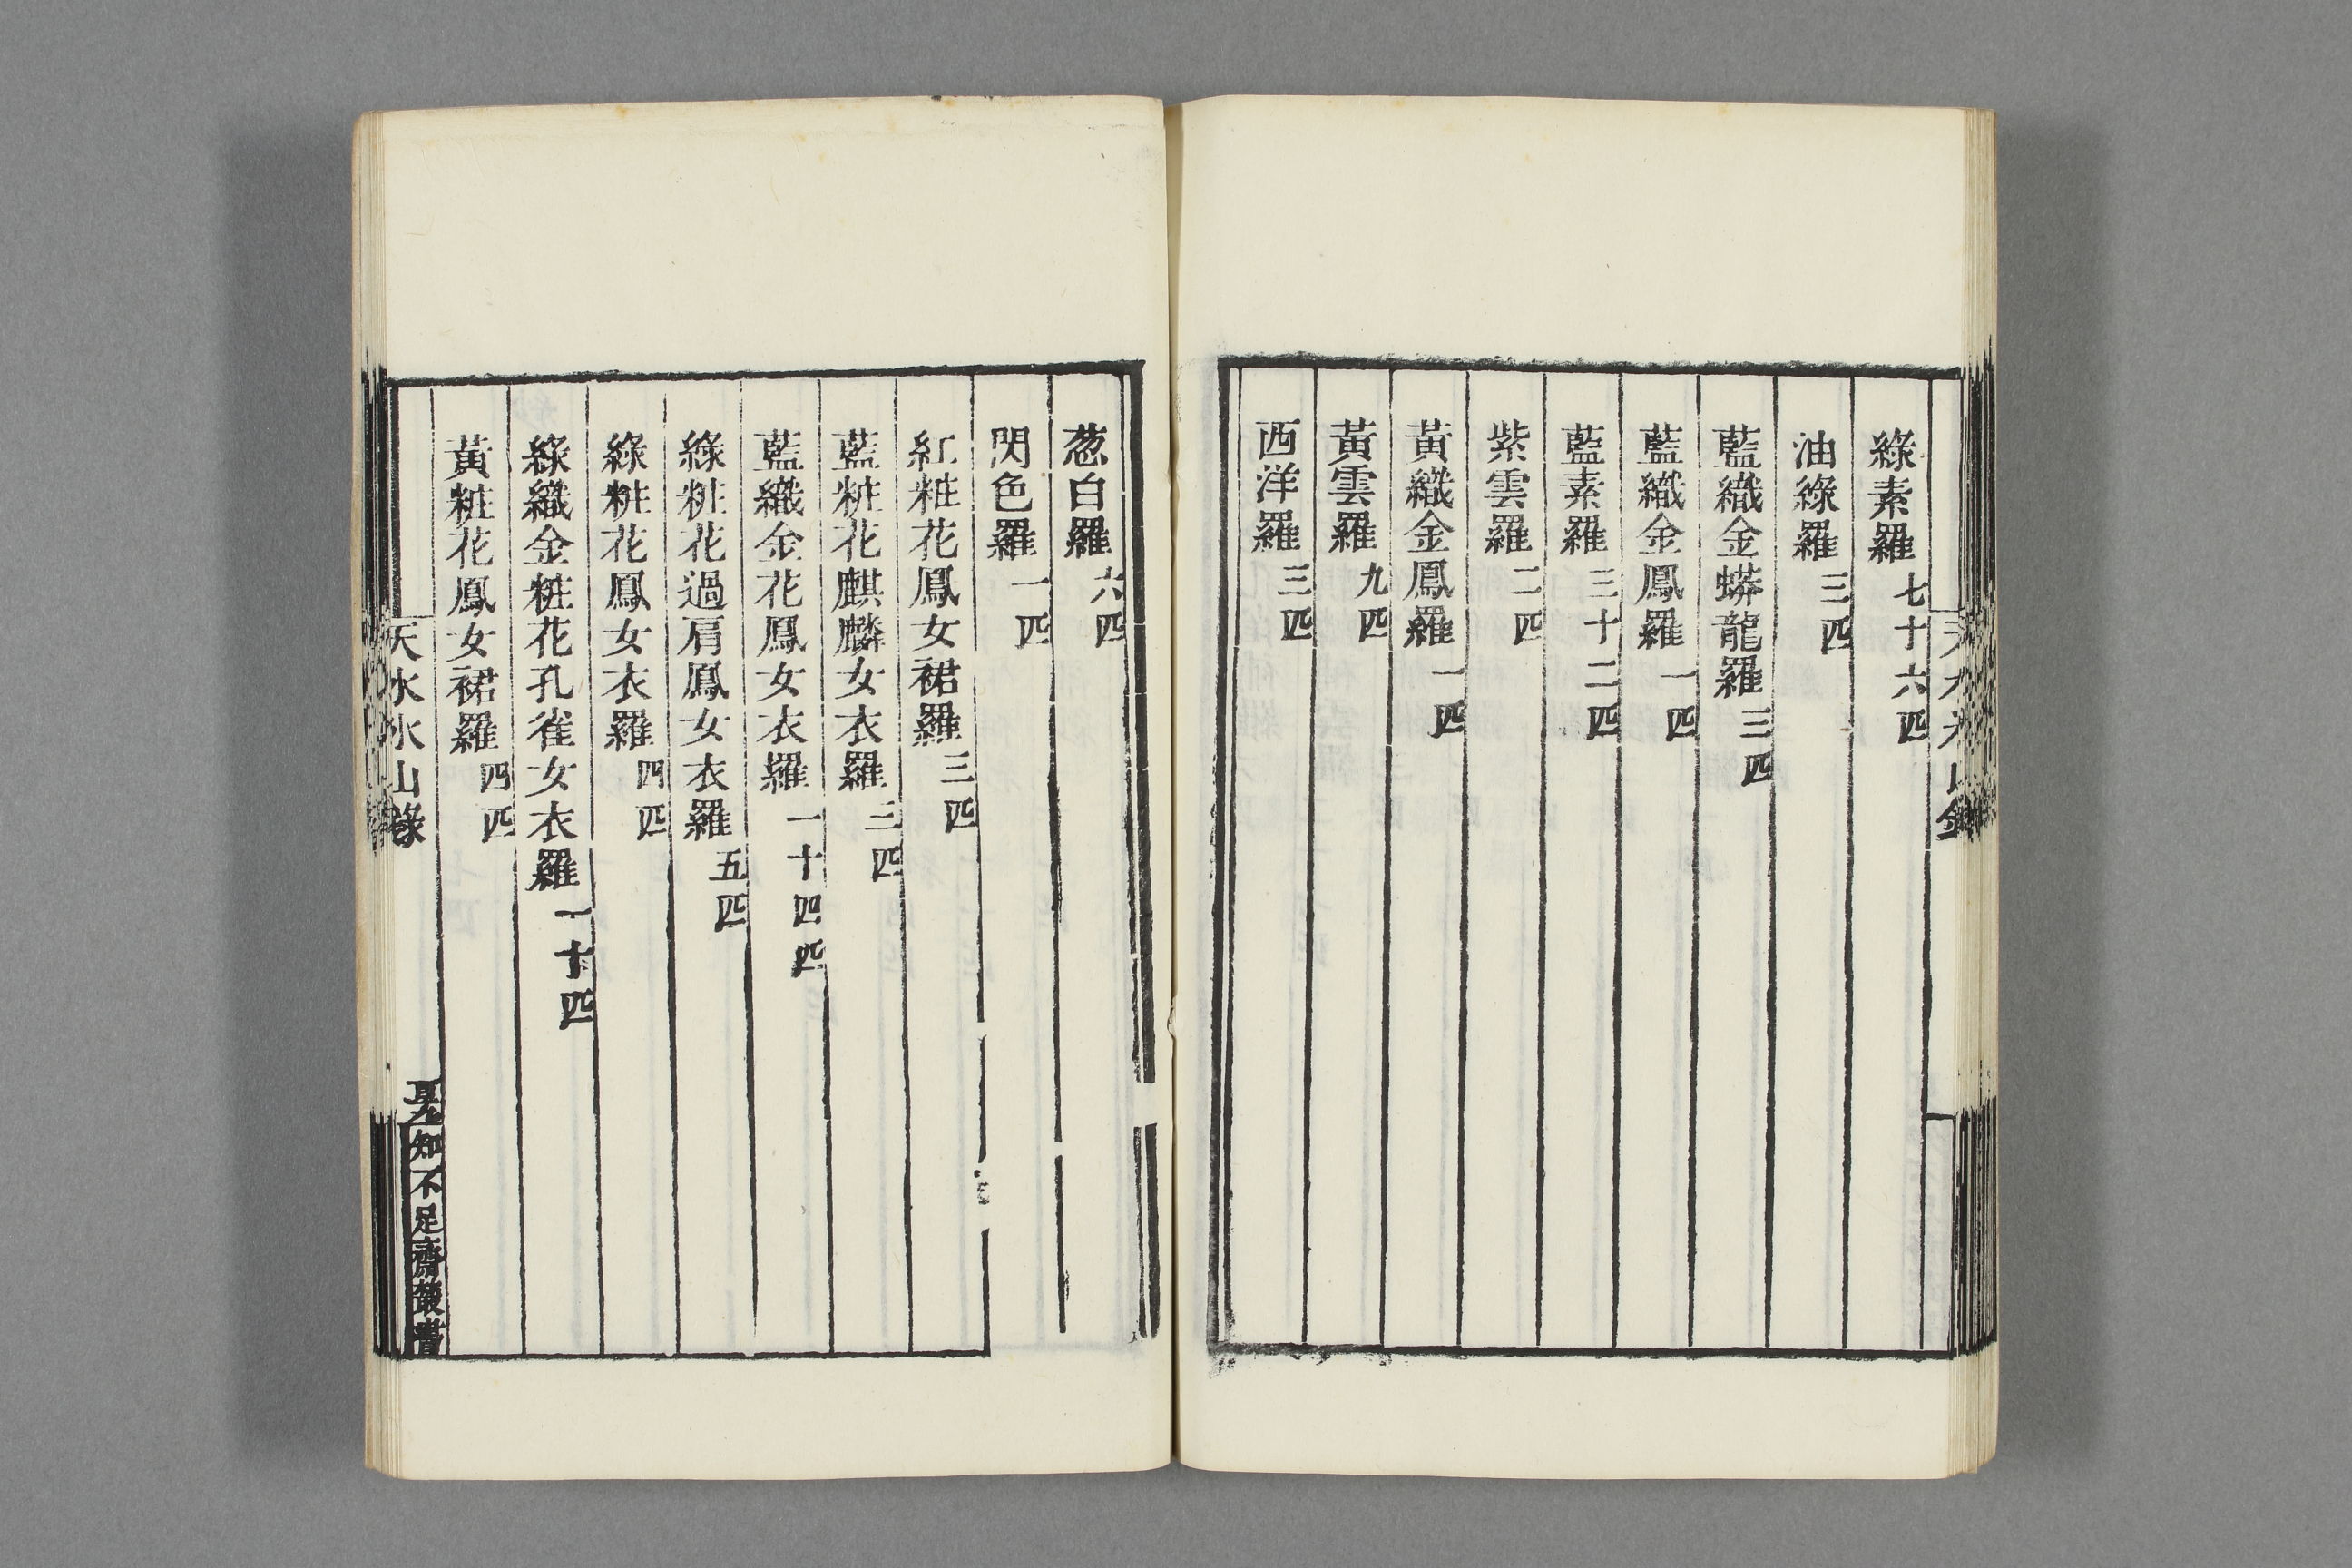 綠素羅七十六匹
油綠羅三匹
藍織金蟒龍羅三匹
藍織金鳳羅一匹
藍素羅三十二匹
紫雲羅二匹
黃織金鳳羅一匹
黃雲羅九匹
西洋羅三匹
葱白羅六匹
閃色羅一匹
紅粧花鳳女裙羅三匹
藍粧花麒麟女衣羅三匹
藍織金花鳳女衣羅一十四匹
綠粧花過肩鳳女衣羅五匹
綠粧花鳳女衣羅四匹
綠織金粧花孔雀女衣羅一十匹
黃粧花鳳女裙羅四匹
天水冰山錄
知不足齋叢書